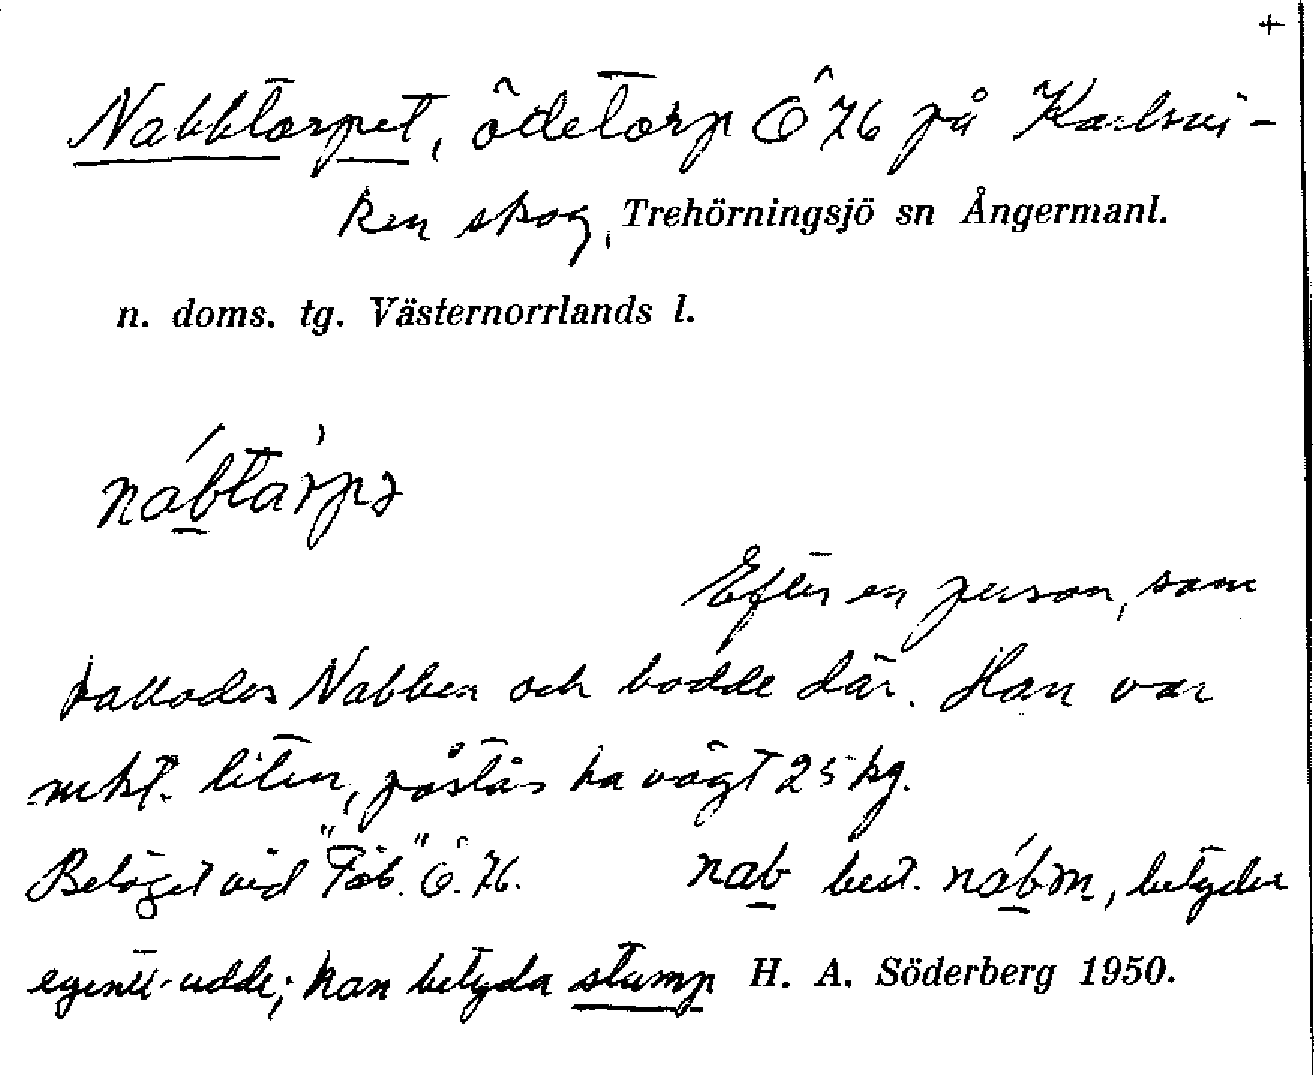 +
Nabbtorpet, ödetorp Ö 76 på Karlsvi-
ken skog, Trehörningsjö sn Ångermanl.
n. doms. tg. Västernorrlands l.
nábtàrpə
Efter en person, som
kallades Nabben och bodde där. Han var
mkt. liten, påstås ha vägt 25 kg.
Beläget vid "Täb." Ö. 76. nab best. nábm, betyder
egentl. udde; kan betyda stump H. A. Söderberg 1950.